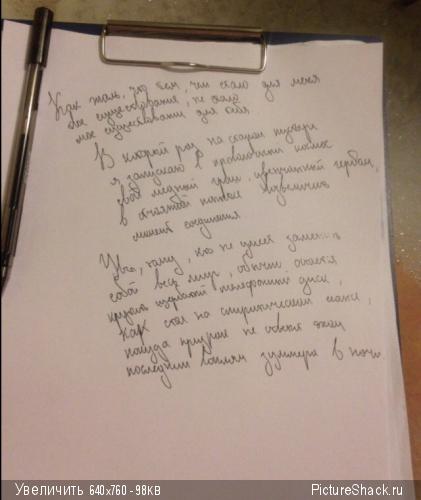 Как жаль, что тем, чем стало для меня
твое существование, не стало
мое существованье для тебя.
В который раз на старом пустыре
я запускаю в проволочный космос
свой медный грош, увенчанный гербом,
в отчаянной попытке возвеличить
момент соединения
Увы, тому, кто не умеет заменить
собой весь мир, обычно остаётся
крутить щербатый телефонный диск,
как стол на спиритическом сеансе,
покуда призрак не ответит эхом
последним воплям зуммера в ночи.
Увеличить 640x760 - 98KB
PictureShack.ru